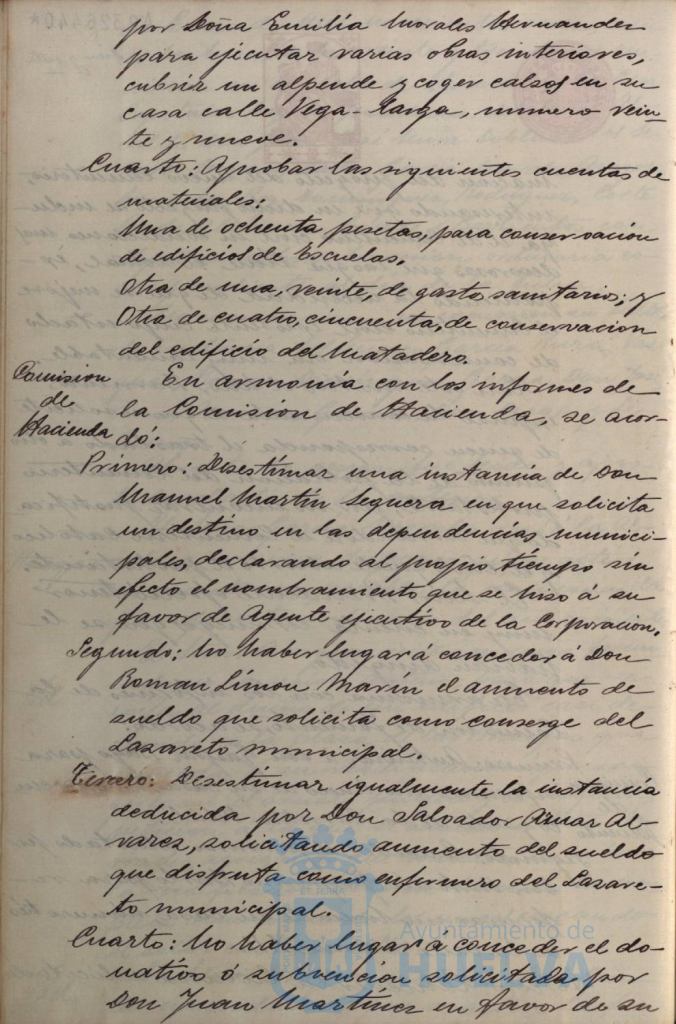 por Doña Emilia Morales Hernandez
para ejecutar varias obras interiores,
cubrir un alpende y coger calsos en su
casa calle Vega-larga, numero vein-
te y nueve.
Cuarto: Aprobar las siguientes cuentas de
materiales:
Una de ochenta pesetas, para conservacion
de edificios de Escuelas.
Otra de una, veinte, de gasto sanitario; y
Otra de cuatro, cincuenta, de conservacion
del edificio del Matadero.
Comision
de
Hacienda
En armonía con los informes de
la Comision de Hacienda, se acor-
dó:
Primero: Desestimar una instancia de Don
Manuel Martín Seguera en que solicita
un destino en las dependencias munici-
pales, declarando al propio tiempo sin
efecto el nombramiento que se hizo á su
favor de Agente ejecutivo de la Corporacion.
Segundo: No haber lugar á conceder á Don
Roman Limon Marín el aumento de
sueldo que solicita como conserge del
Lazareto municipal.
Tercero: Desestimar igualmente la instancia
deducida por Don Salvador Aznar Al-
varez, solicitando aumento del sueldo
que disfruta como enfermero del Lazare-
to municipal.
Cuarto: No haber lugar á conceder el do-
nativo ó subvencion solicitada por
Don Juan Martínez en favor de su
Ayuntamiento de
HUELVA